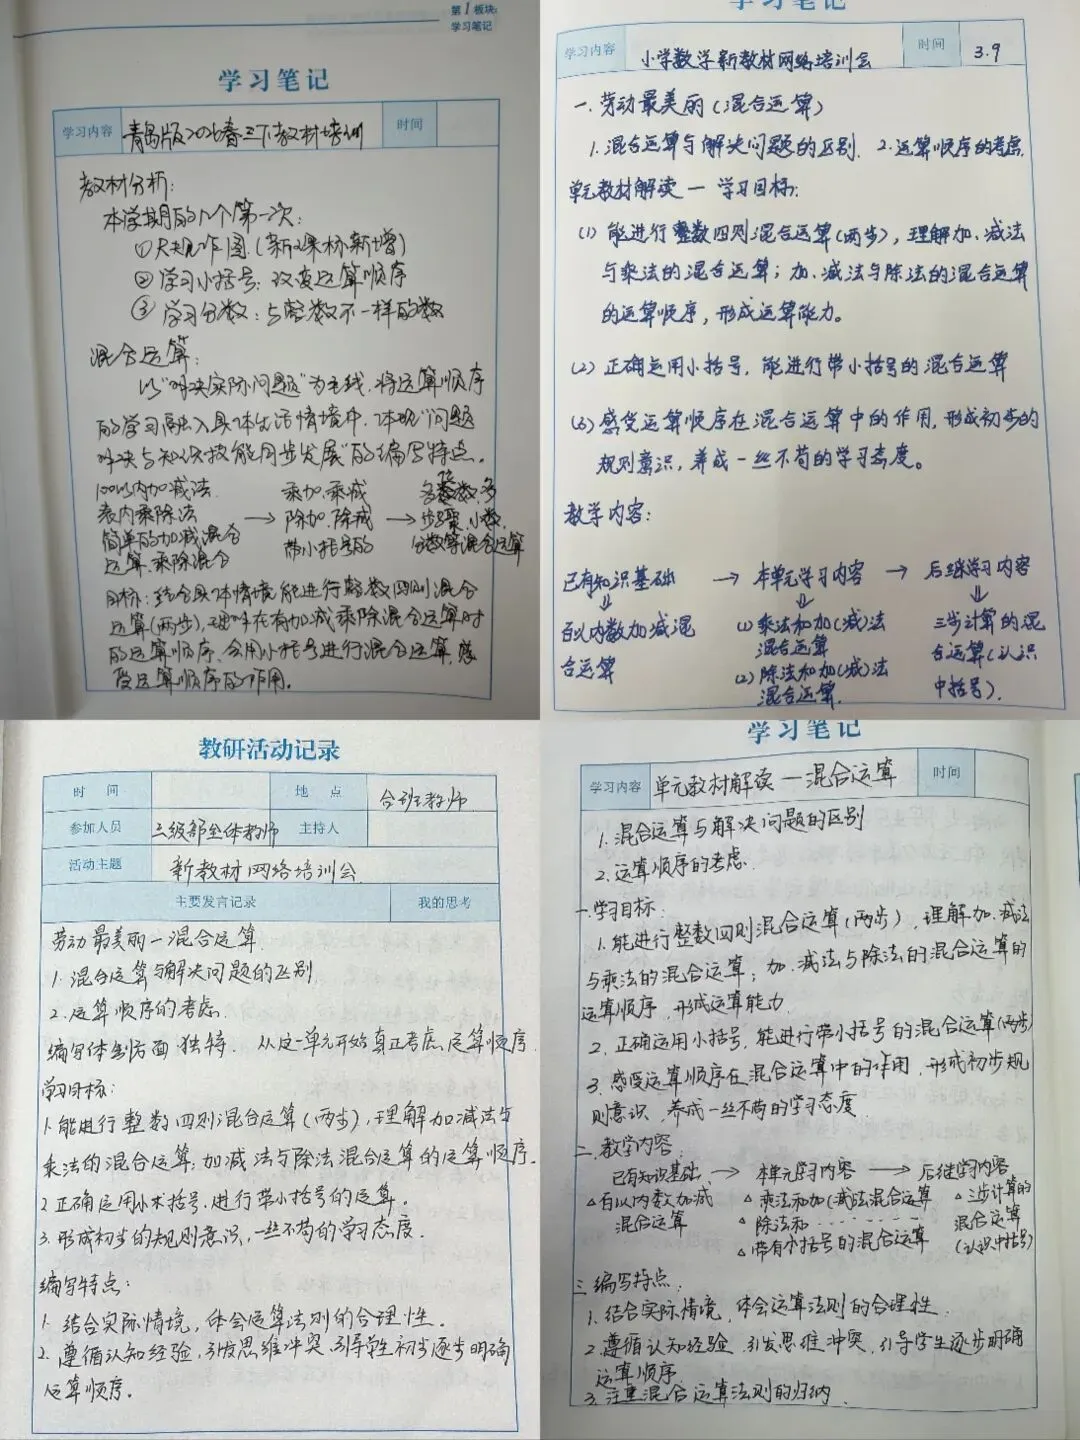 第1板块:
学习笔记
学习笔记
学习内容 青岛版2026春三下教材培训 时间
教材分析:
本学期的几个第一次:
①尺规作图(新课标新增)
②学习小括号:改变运算顺序
③学习分数:与整数不一样的数
混合运算:
以"解决实际问题"为主线,将运算顺序
的学习融入具体生活情境中,体现"问题
解决与知识技能同步发展"的编写特点。
100以内加减法 乘加、乘减 多
表内乘除法 → 除加、除减 → 步骤、小数、
简单的加减混合 带小括号的 分数等混合运算
运算、乘除混合
目标:结合具体情境能进行整数四则混合
运算(两步),理解在有加减乘除混合运算时
的运算顺序,会用小括号进行混合运算,感
受运算顺序的作用。
学习笔记
学习内容 小学数学新教材网络培训会 时间 3.9
一.劳动最美丽(混合运算)
1.混合运算与解决问题的区别. 2.运算顺序的考虑.
单元教材解读 一 学习目标:
(1) 能进行整数四则混合运算(两步),理解加、减法
与乘法的混合运算;加、减法与除法的混合运算
的运算顺序,形成运算能力。
(2) 正确运用小括号,能进行带小括号的混合运算
(3) 感受运算顺序在混合运算中的作用,形成初步的
规则意识,养成一丝不苟的学习态度。
教学内容:
已有知识基础 → 本单元学习内容 → 后继学习内容
⇓ ⇓ ⇓
百以内数加减混 (1) 乘法和加(减)法 三步计算的混
合运算 混合运算 合运算(认识
(2) 除法和加(减)法 中括号).
混合运算.
教研活动记录
时 间 地 点 合班教师
参加人员 三级部全体教师 主持人
活动主题 新教材网络培训会
主要发言记录 我的思考
劳动最美丽一混合运算
1. 混合运算与解决问题的区别
2. 运算顺序的考虑.
编写体例方面 独特. 从这一单元开始真正考虑运算顺序.
学习目标:
1.能进行整数四则混合运算(两步),理解加减法与
乘法的混合运算;加减法与除法混合运算的运算顺序.
2 正确运用小括号,进行带小括号的运算.
3. 形成初步的规则意识,一丝不苟的学习态度.
编写特点:
1. 结合实际情境,体会运算法则的合理性.
2. 遵循认知经验,引发思维冲突,引导学生初步逐步明确
运算顺序.
学习笔记
学习内容 单元教材解读一混合运算 时间
1. 混合运算与解决问题的区别
2. 运算顺序的考虑.
一.学习目标:
1.能进行整数四则混合运算(两步),理解加、减法
与乘法的混合运算;加、减法与除法的混合运算的
运算顺序,形成运算能力.
2. 正确运用小括号,能进行带小括号的混合运算(两步)
3. 感受运算顺序在混合运算中的作用,形成初步规
则意识,养成一丝不苟的学习态度.
二.教学内容:
已有知识基础 → 本单元学习内容 → 后继学习内容
△百以内数加减 △乘法和加(减)法混合运算 △三步计算的
混合运算 △除法和-------- 混合运算
△带有小括号的混合运算 (认识中括号)
三.编写特点:
1. 结合实际情境,体会运算法则的合理性.
2. 遵循认知经验,引发思维冲突,引导学生逐步明确
运算顺序
3. 注重混合运算法则的归纳.